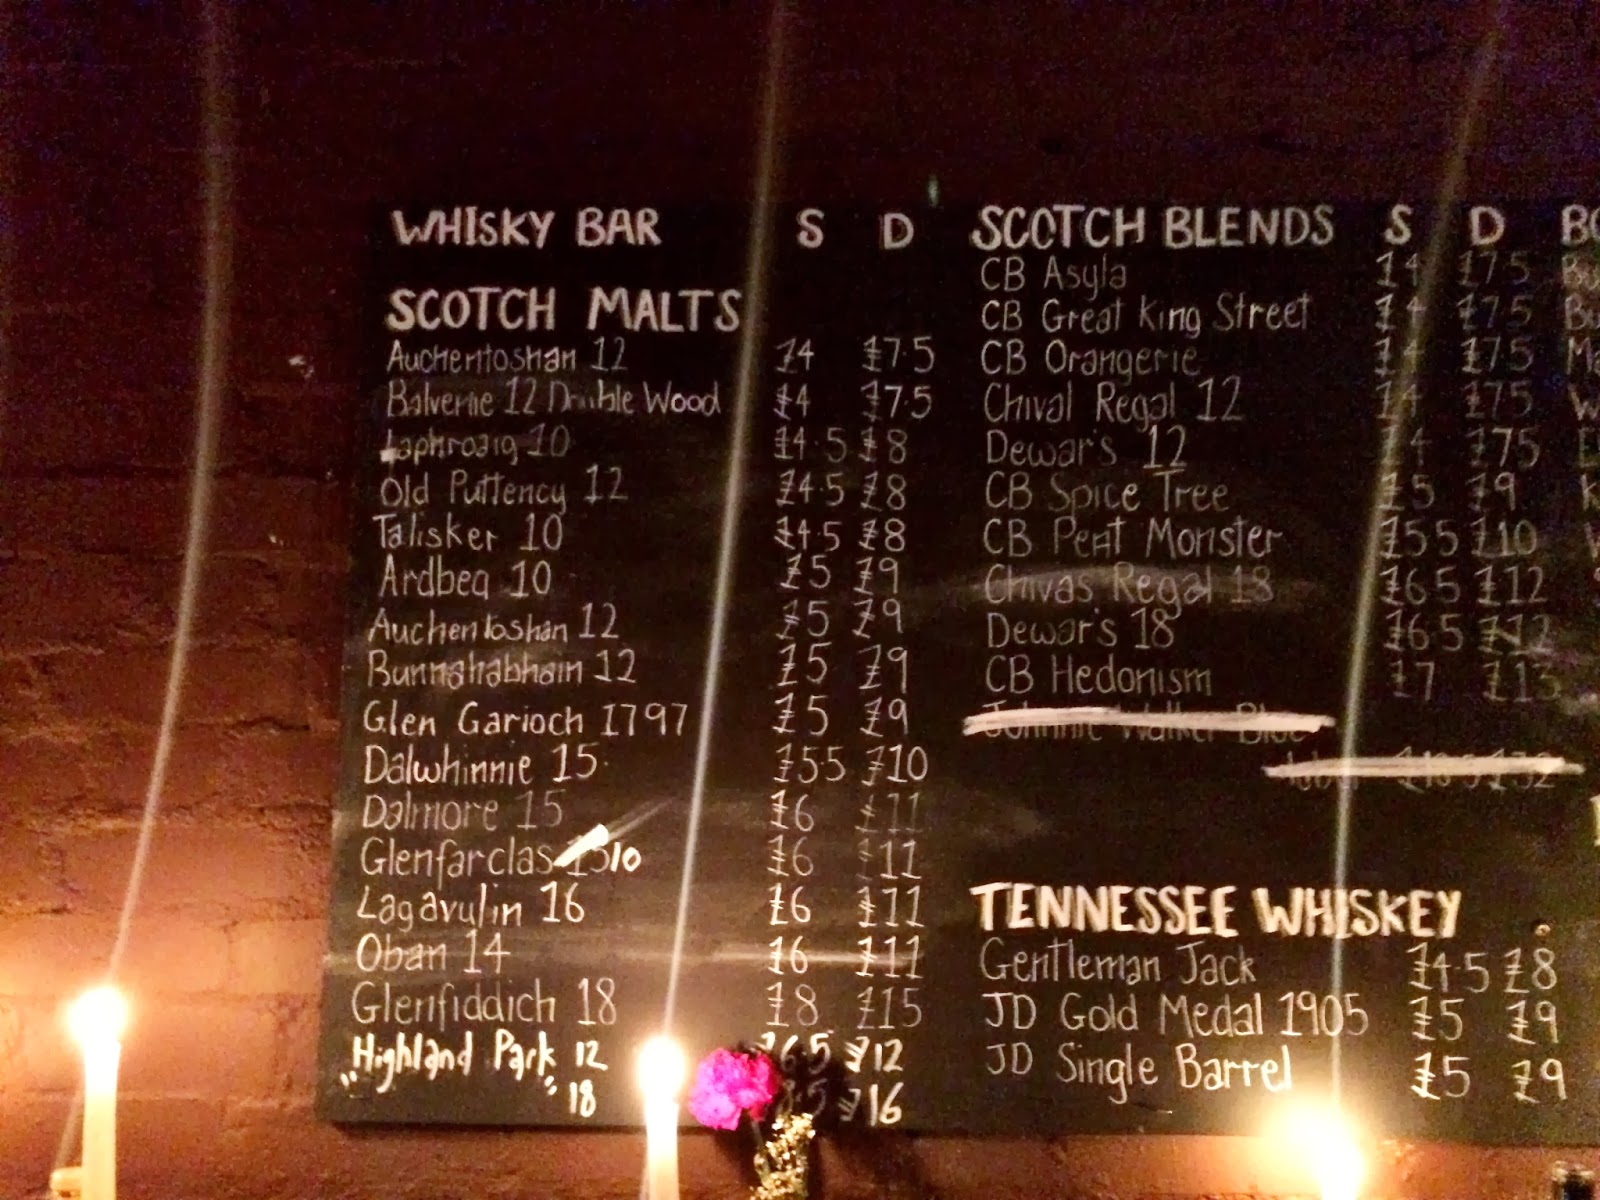 WHISKY BAR S D
SCOTCH MALTS
Auchentoshan 12 £4 £7.5
Balvenie 12 Double Wood £4 £7.5
Laphroaig 10 £4.5 £8
Old Puttency 12 £4.5 £8
Talisker 10 £4.5 £8
Ardbeg 10 £5 £9
Auchentoshan 12 £5 £9
Bunnahabhain 12 £5 £9
Glen Garioch 1797 £5 £9
Dalwhinnie 15 £5.5 £10
Dalmore 15 £6 £11
Glenfarclas 10 £6 £11
Lagavulin 16 £6 £11
Oban 14 £6 £11
Glenfiddich 18 £8 £15
Highland Park 12 £6.5 £12
" " 18 8.5 £16
SCOTCH BLENDS S D
CB Asyla £4 £7.5
CB Great King Street £4 £7.5
CB Orangerie £4 £7.5
Chival Regal 12 £4 £7.5
Dewar's 12 £4 £7.5
CB Spice Tree £5 £9
CB Peat Monster £5.5 £10
Chivas Regal 18 £6.5 £12
Dewar's 18 £6.5 £12
CB Hedonism £7 £13
Johnnie Walker Blue
TENNESSEE WHISKEY
Gentleman Jack £4.5 £8
JD Gold Medal 1905 £5 £9
JD Single Barrel £5 £9